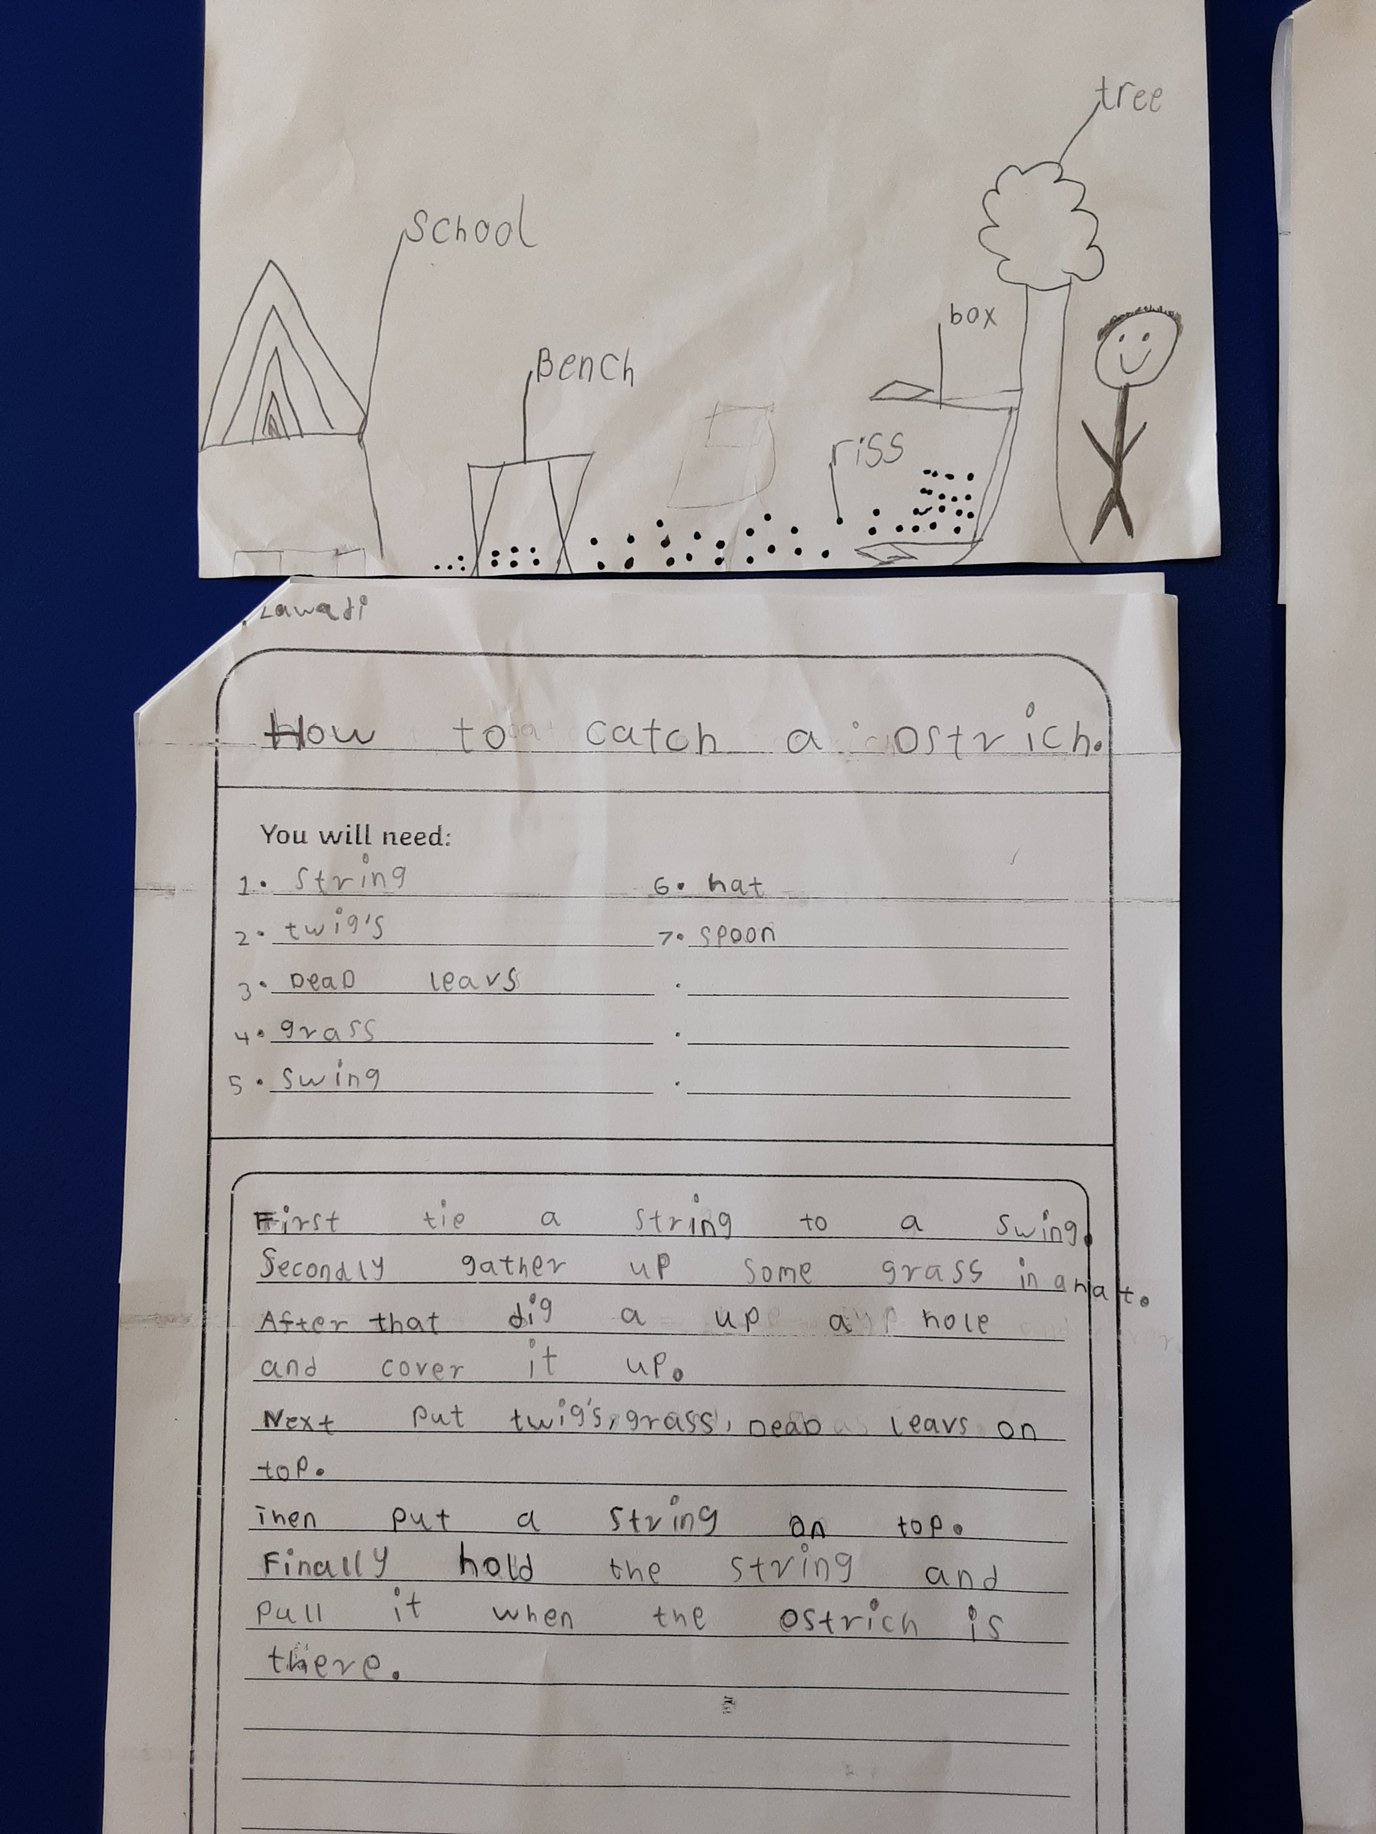 tree
school
box
Bench
riss
Lawati
How to catch a ostrich.
You will need:
1. string
2. twig's
3. Dead leavs
4. grass
5. swing
6. hat
7. spoon
First tie a string to a swing.
Secondly gather up some grass in a hat.
After that dig a up a hole
and cover it up.
Next put twig's, grass, Dead leavs on
top.
Then put a string on top.
Finally hold the string and
pull it when the ostrich is
there.